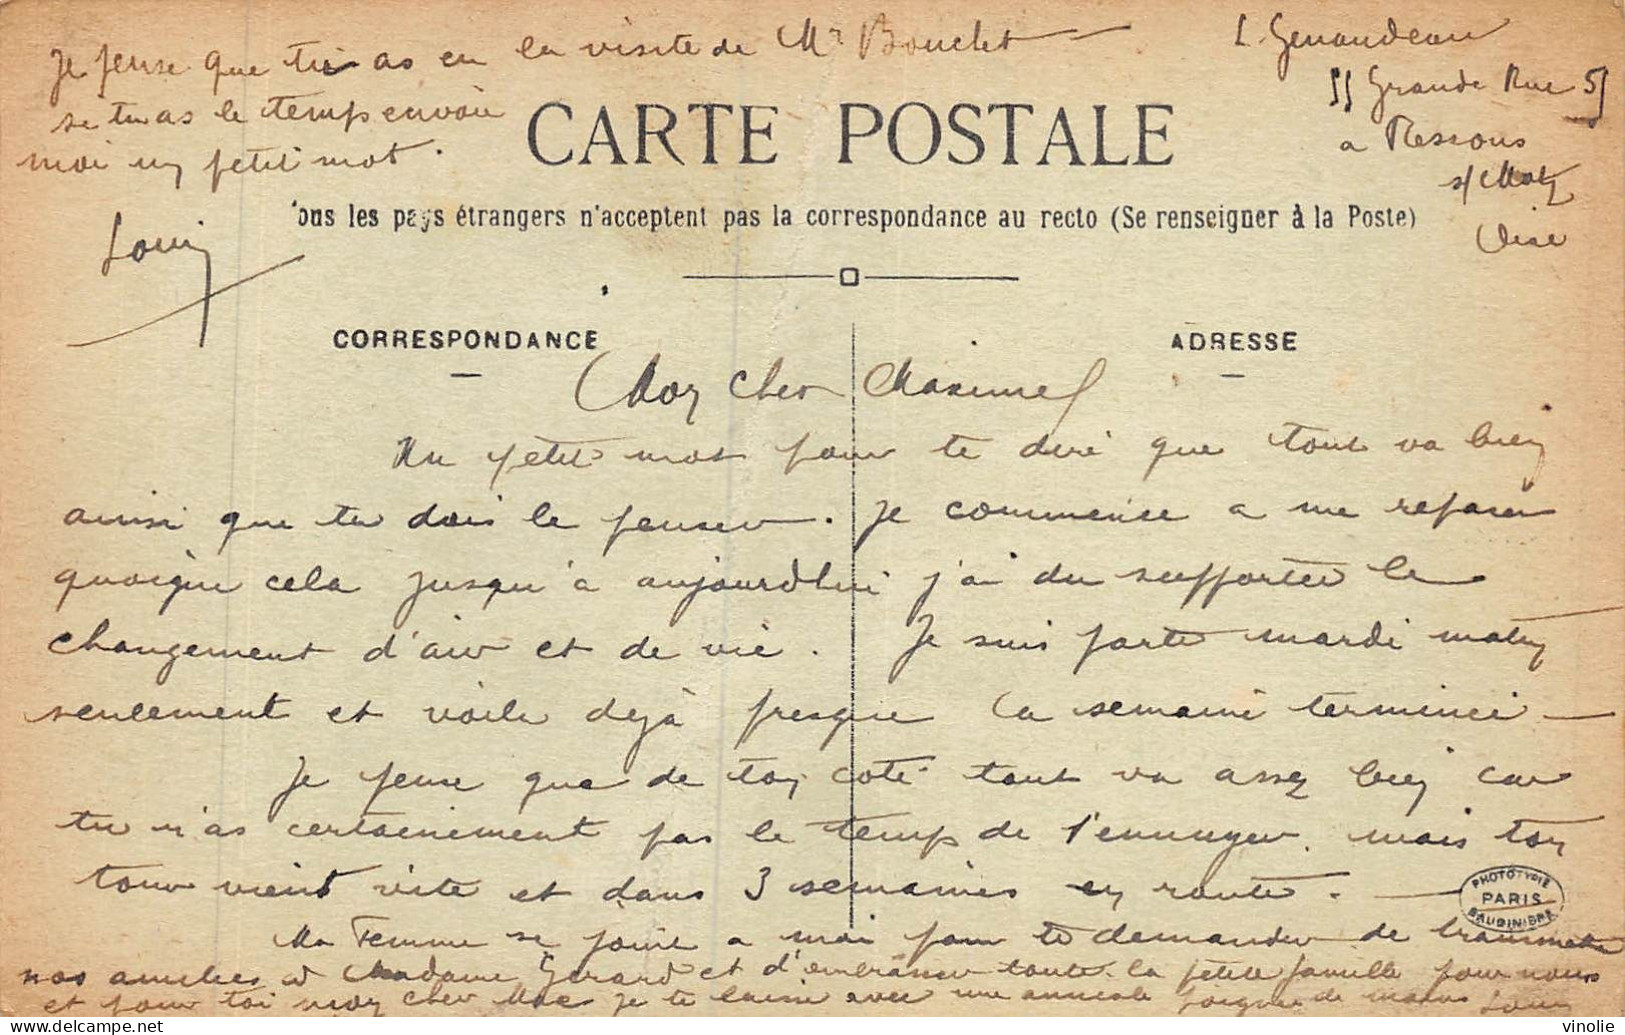 Je pense que tu as eu la visite de Mr Bouclet
si tu as le temps envoie
moi un petit mot.
Louis
L. Genaudeau
55 Grande Rue 55
a Ressons
s/ Matz
Oise
CARTE POSTALE
ous les pays étrangers n'acceptent pas la correspondance au recto (Se renseigner à la Poste)
CORRESPONDANCE
ADRESSE
Mon cher Maxime
Un petit mot pour te dire que tout va bien
ainsi que tu dois le penser. Je commence a me reposer
quoique cela jusqu'a aujourd'hui j'ai du supporter le
changement d'air et de vie. Je suis parti mardi matin
seulement et voila déjà presque la semaine terminée
Je pense que de ton coté tout va assez bien car
tu n'as certainement pas le temp de t'ennuyer. mais ton
tour vient vite et dans 3 semaines en route.
Ma Femme se joint a moi pour te demander de transmettre
nos amitiés à Madame Gerard et d'embrasser toute la petite famille pour nous
et pour toi mon cher Max je te laisse avec une amicale poignée de mains Louis
PHOTOTYPIE
PARIS
BAUDINIERE
vinolie